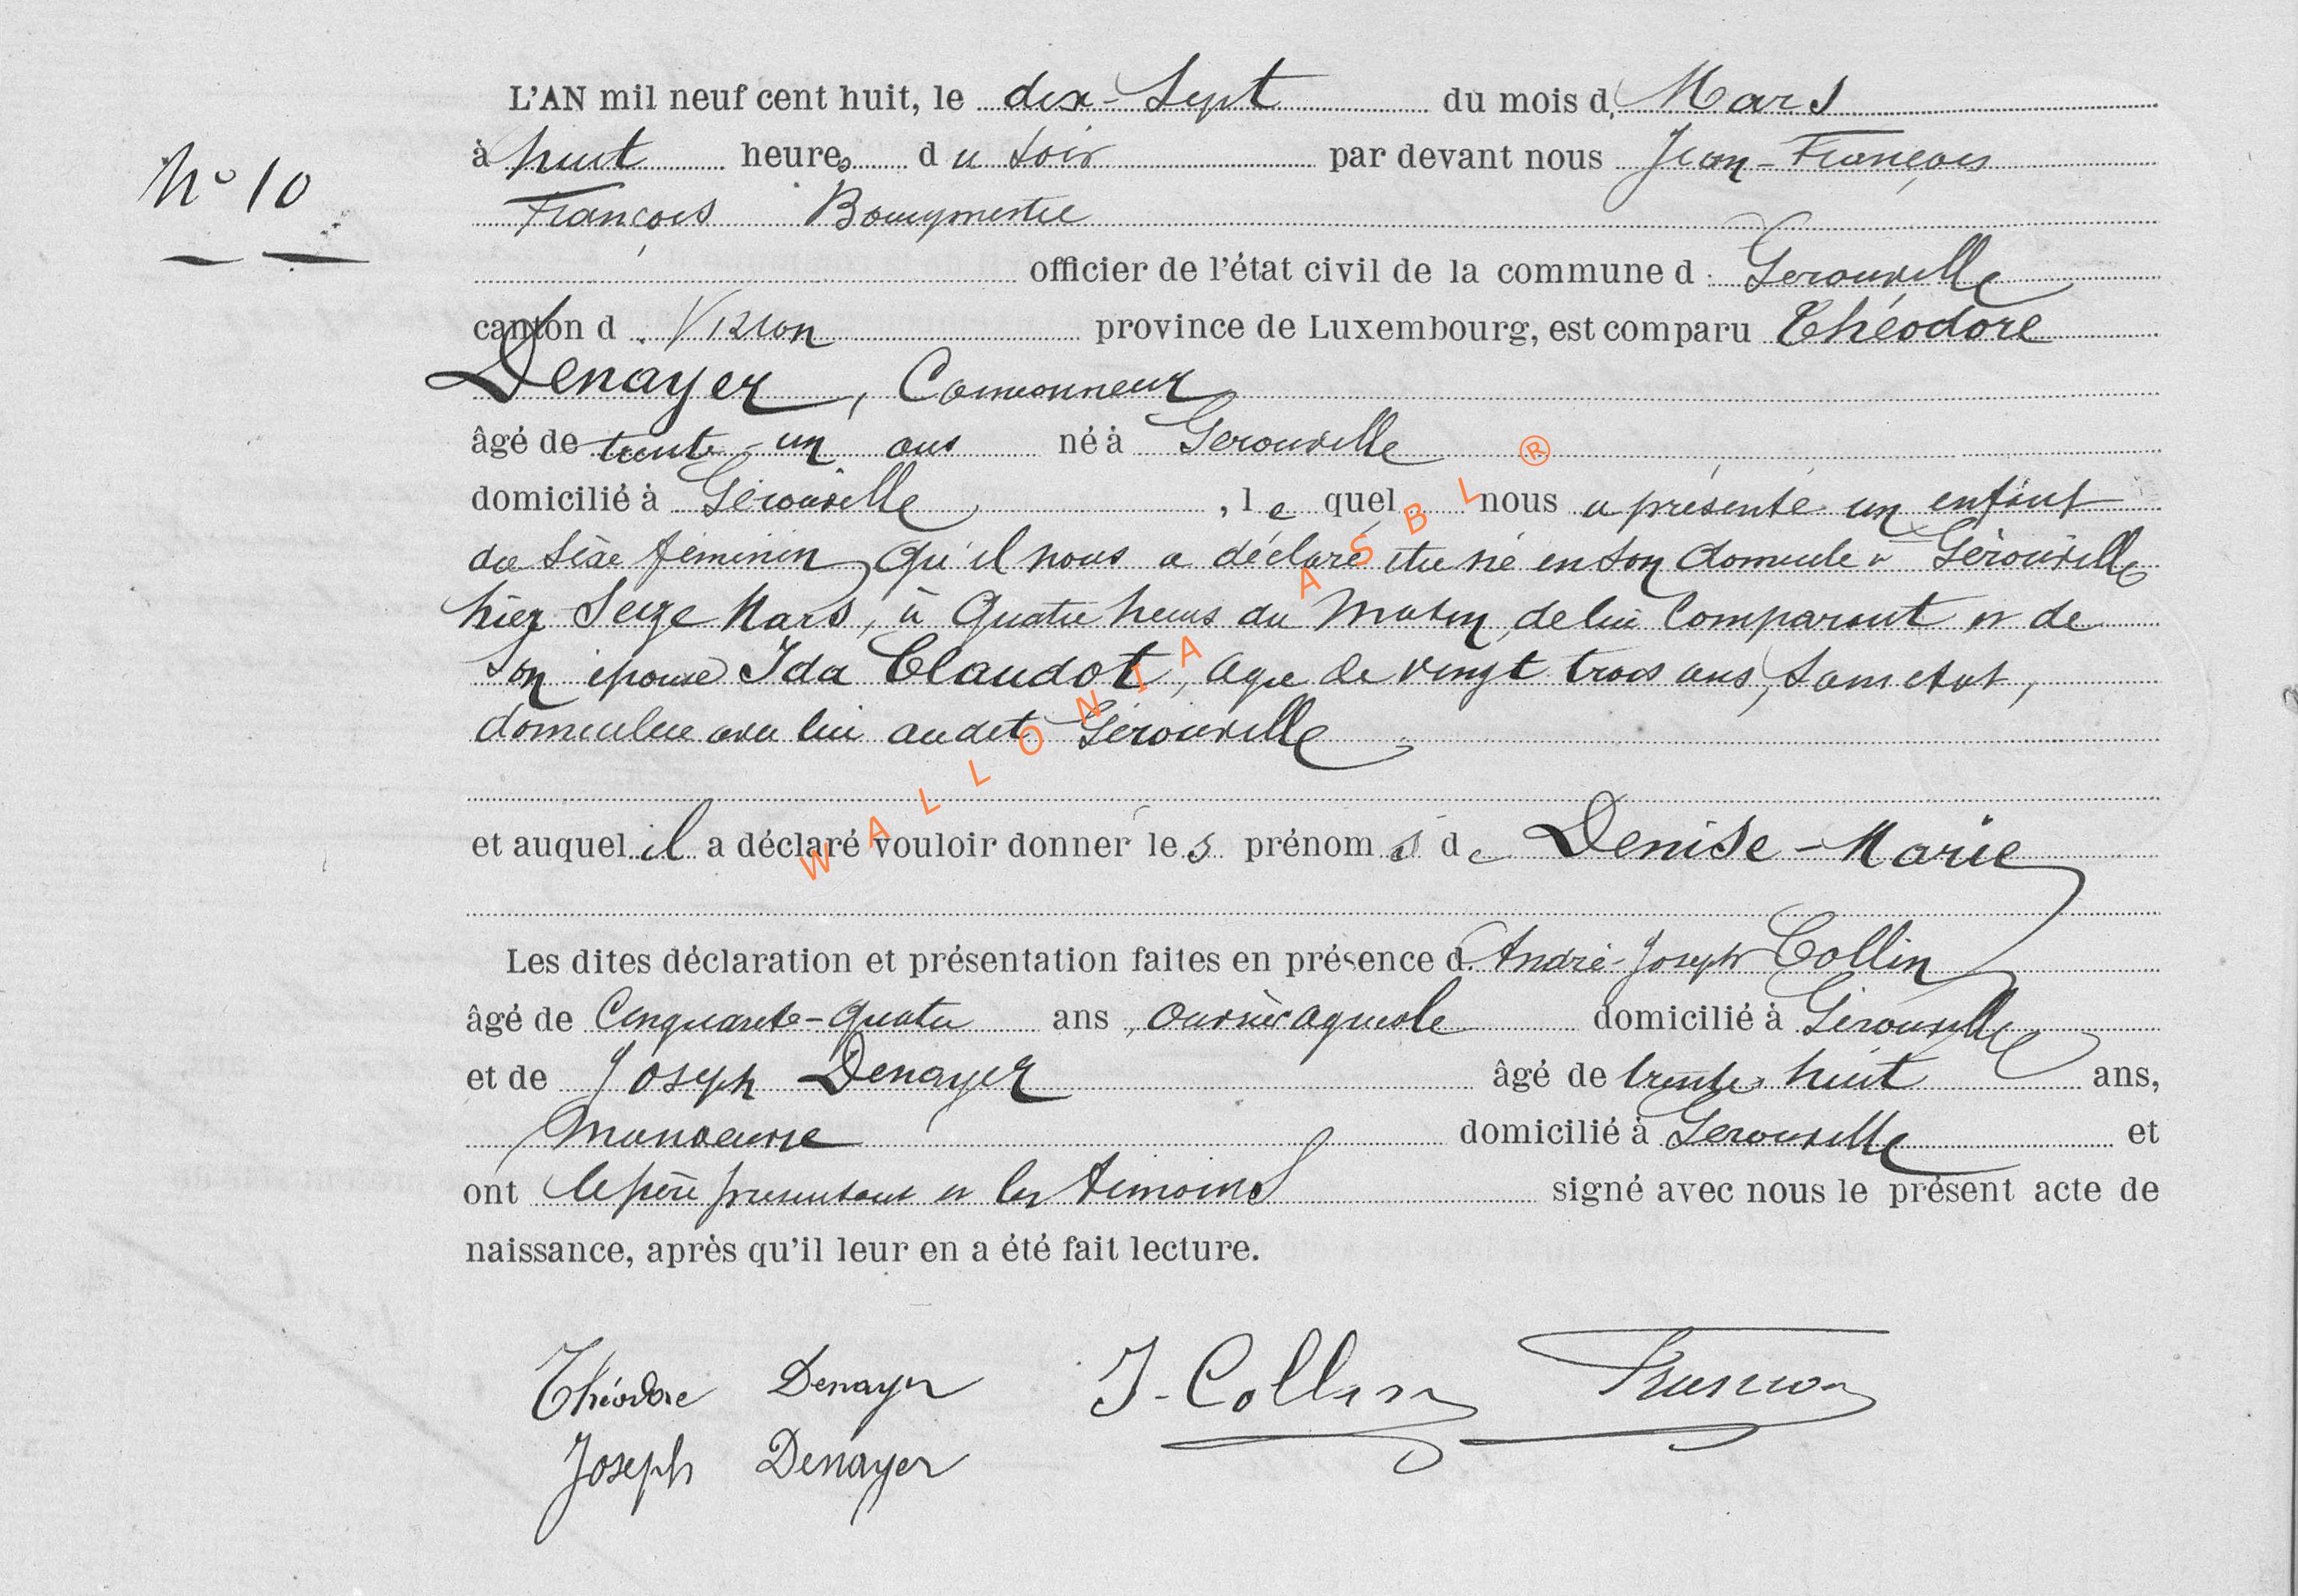 L'AN mil neuf cent huit, le dix-Sept du mois d Mars
N° 10
à huit heures du soir par devant nous Jean-François
François Bourgmestre
officier de l'état civil de la commune d Gerouville
canton d Virton province de Luxembourg, est comparu Théodore
Denayer, Camionneur
âgé de trente-un ans né à Gerouville
domicilié à Gérouville, le quel nous a présenté un enfant
du sexe féminin qu'il nous a déclaré être né en son domicile à Gérouville
hier Seize Mars, à Quatre heures du Matin, de lui Comparant et de
son épouse Ida Claudot, agée de vingt trois ans, sans etat,
domiciliée avec lui audit Gérouville
WALLONIA ASBL ®
et auquel il a déclaré vouloir donner les prénoms de Denise-Marie
Les dites déclaration et présentation faites en présence d André-Joseph Collin
âgé de Cinquante-quatre ans, ouvrier agricole domicilié à Gérouville
et de Joseph Denayer âgé de trente-huit ans,
Manoeuvre domicilié à Gerouville et
ont le père présentant et les témoins signé avec nous le présent acte de
naissance, après qu'il leur en a été fait lecture.
Théodore Denayer J. Collin
Joseph Denayer